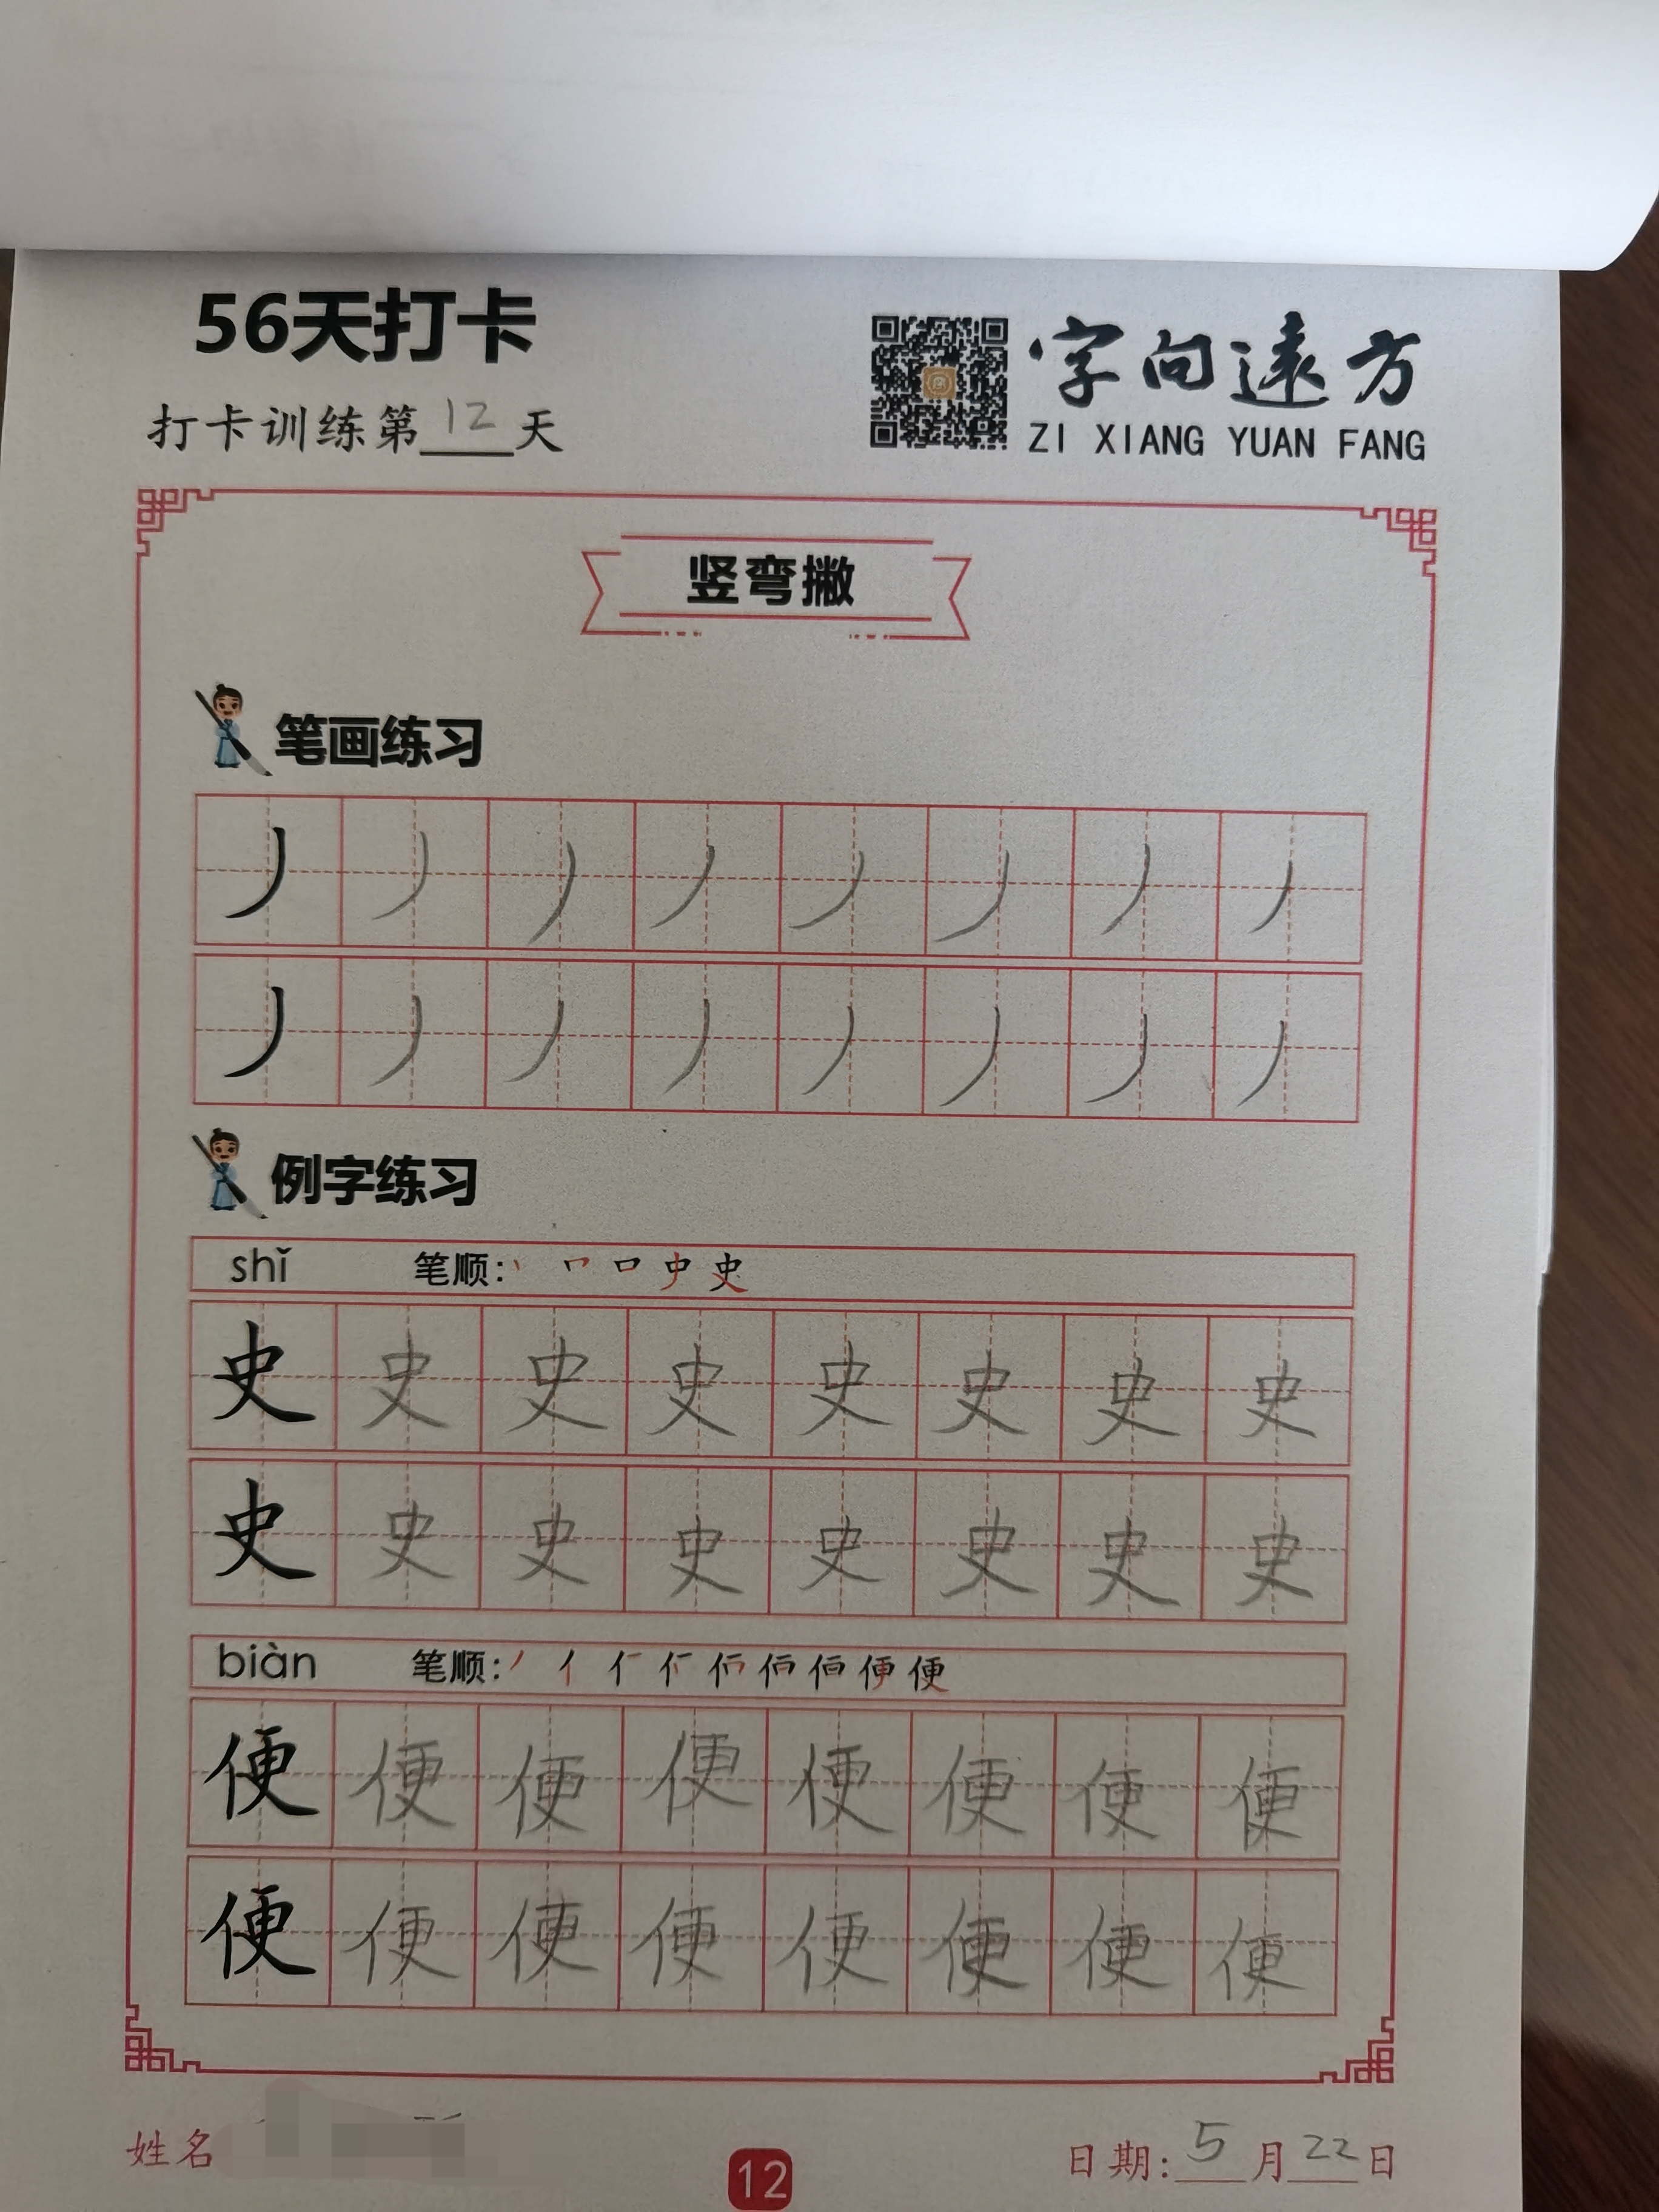 56天打卡
打卡训练第12天
字向遠方
ZI XIANG YUAN FANG
竖弯撇
笔画练习
丿 丿 丿 丿 丿 丿 丿 丿
丿 丿 丿 丿 丿 丿 丿 丿
例字练习
shǐ 笔顺: 丶 史
史 史 史 史 史 史 史 史
史 史 史 史 史 史 史 史
biàn 笔顺: 丿 亻 便
便 便 便 便 便 便 便 便
便 便 便 便 便 便 便 便
姓名
12
日期:5月22日